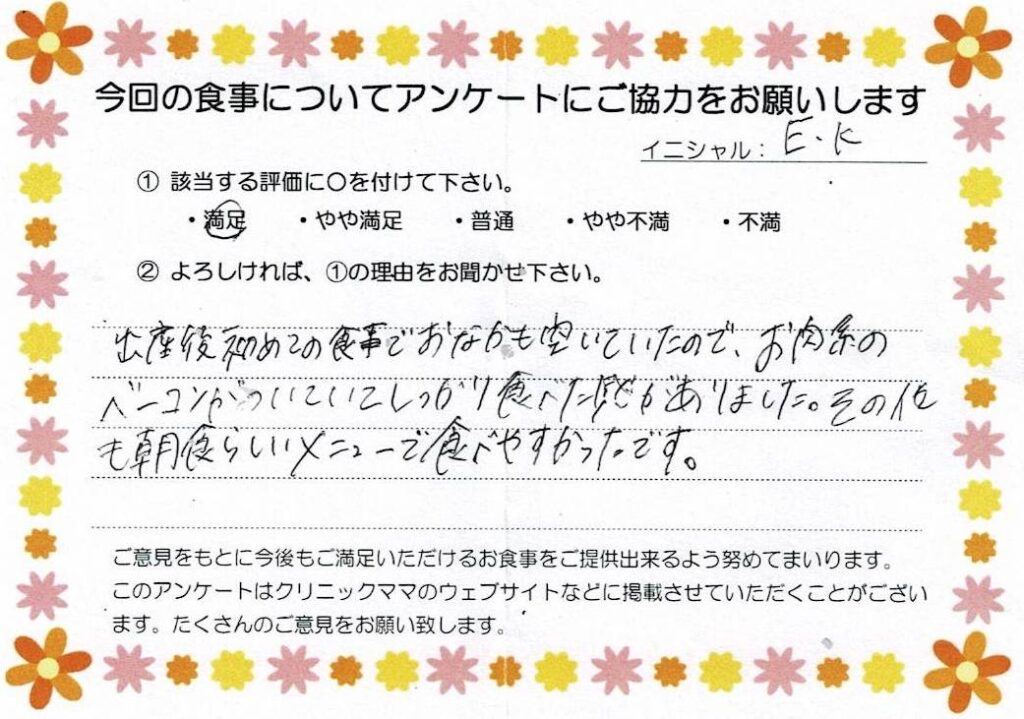 今回の食事についてアンケートにご協力をお願いします
イニシャル： E・K
① 該当する評価に○を付けて下さい。
・満足 ・やや満足 ・普通 ・やや不満 ・不満
② よろしければ、①の理由をお聞かせ下さい。
出産後初めての食事でおなかも空いていたので、お肉系の
ベーコンがついていてしっかり食べた感がありました。その他
も朝食らしいメニューで食べやすかったです。
ご意見をもとに今後もご満足いただけるお食事をご提供出来るよう努めてまいります。
このアンケートはクリニックママのウェブサイトなどに掲載させていただくことがござい
ます。たくさんのご意見をお願い致します。